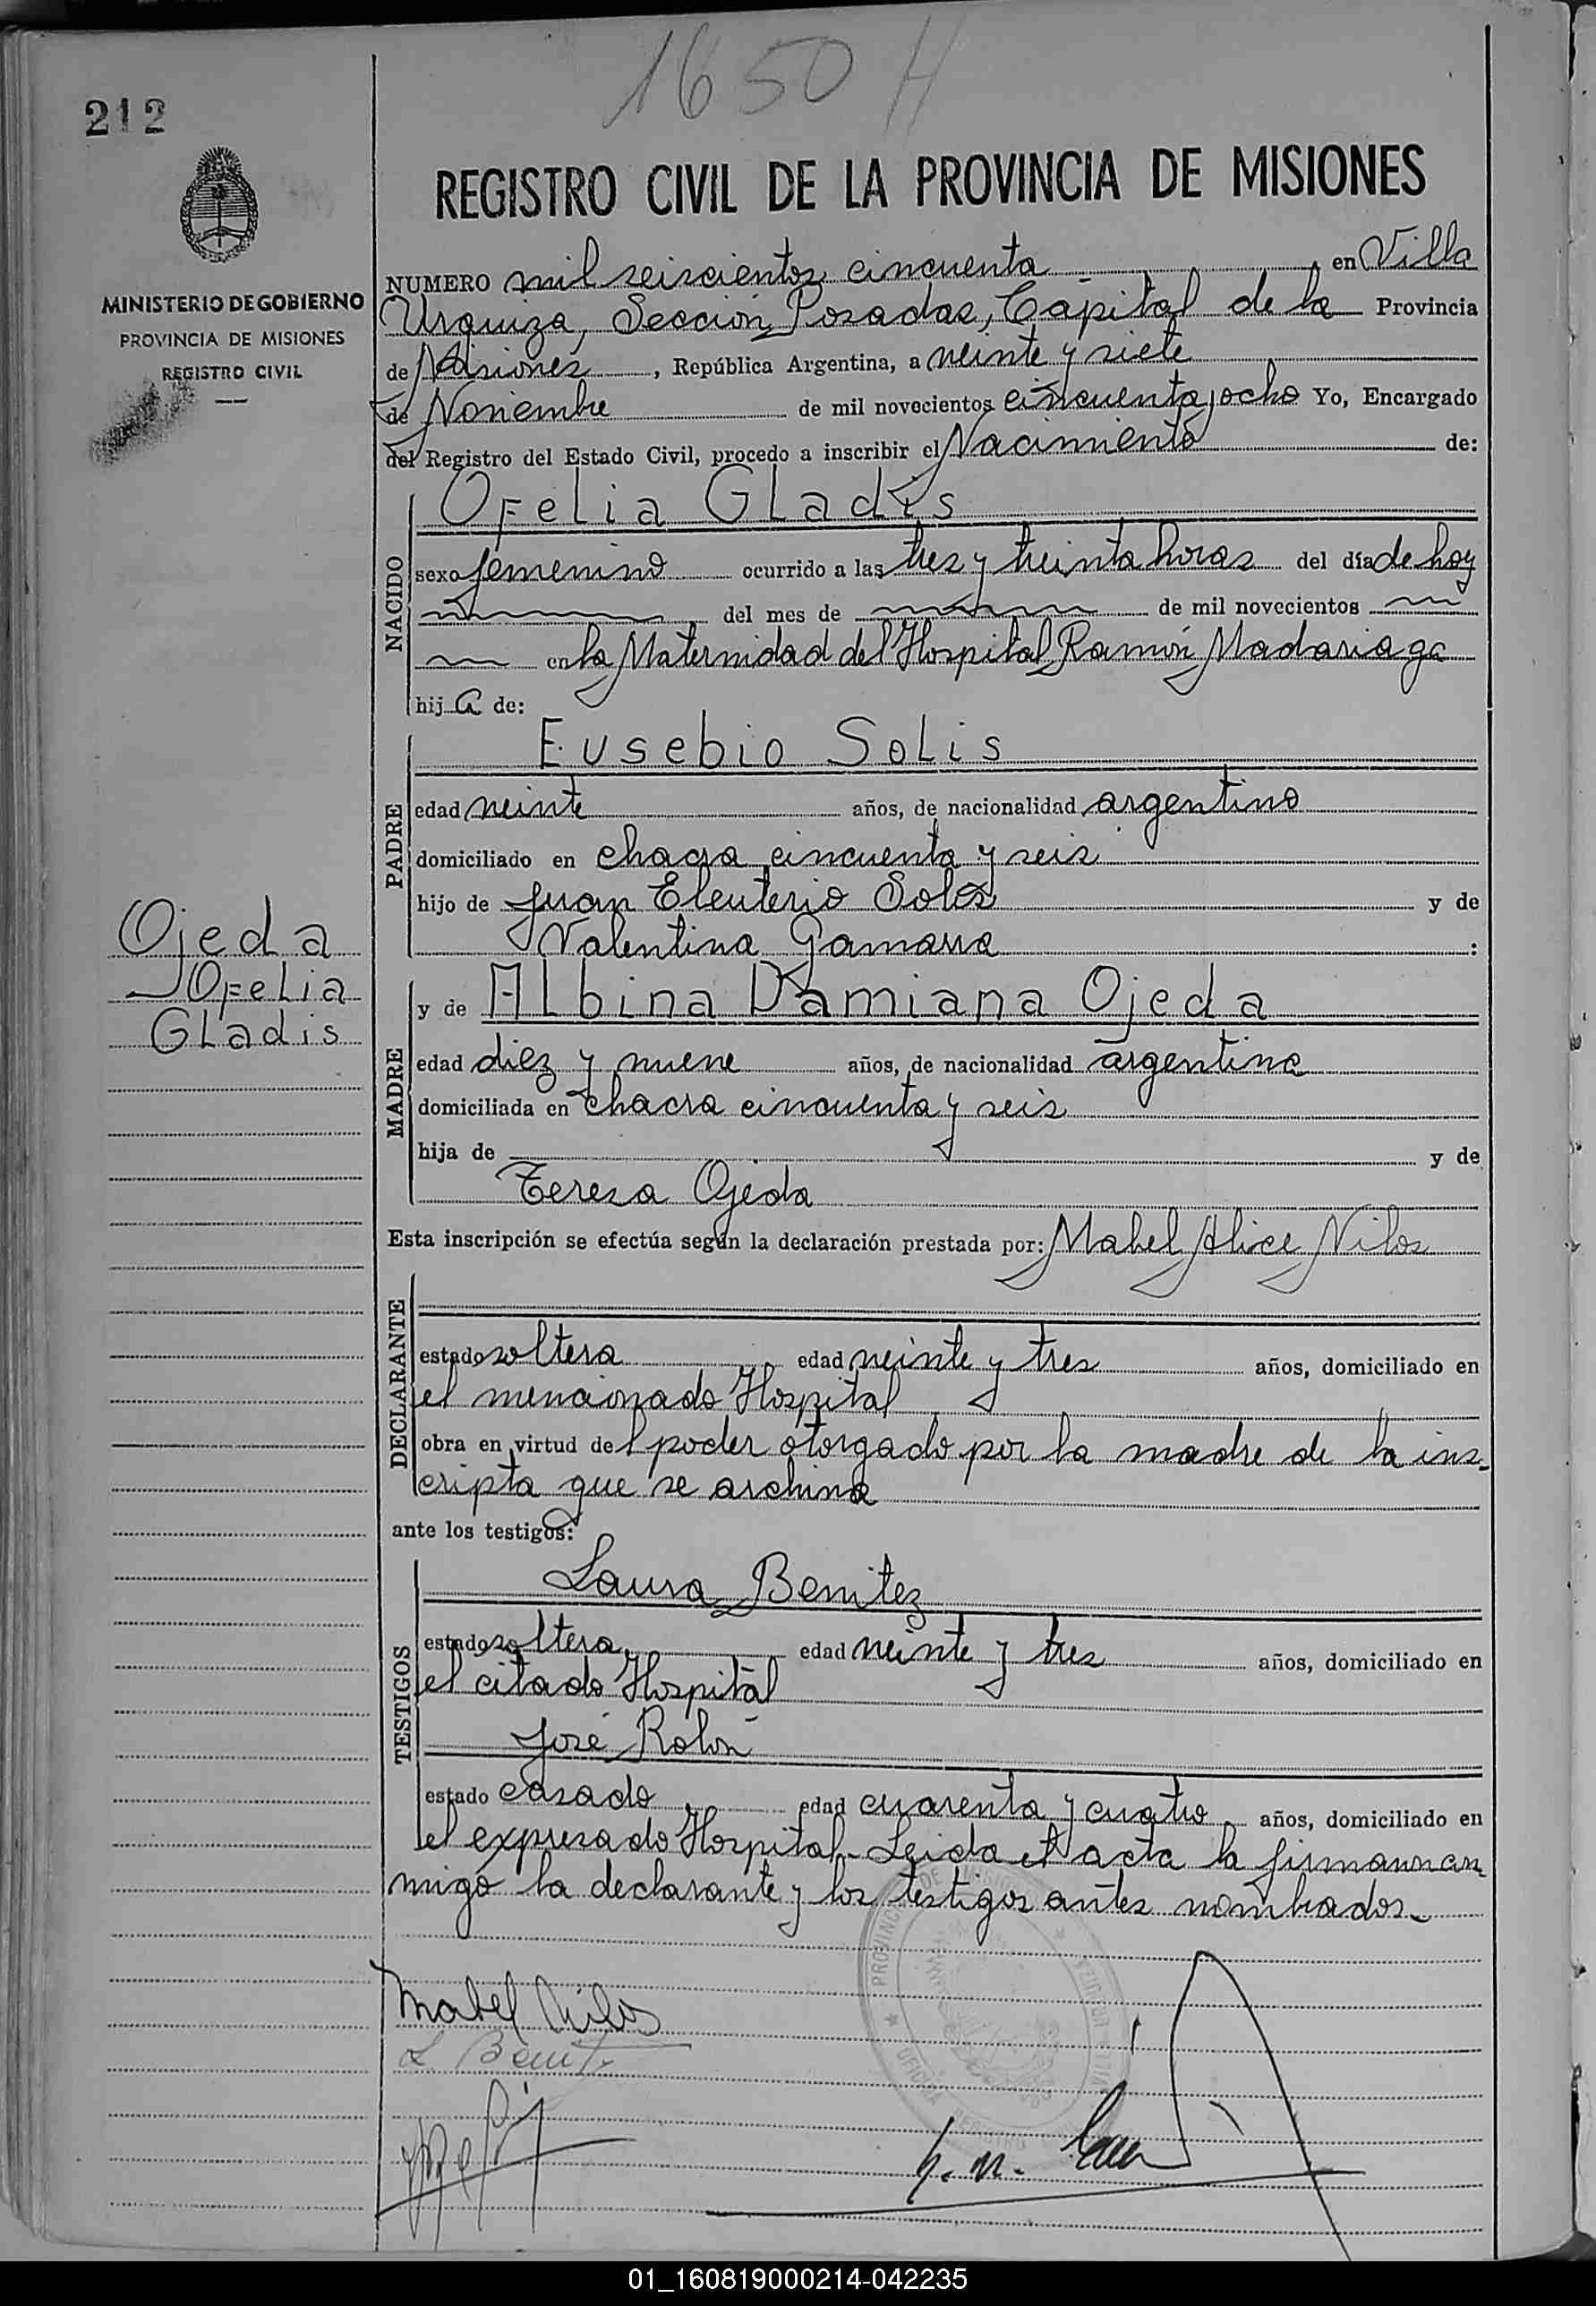 1650 H
212
REGISTRO CIVIL DE LA PROVINCIA DE MISIONES
MINISTERIO DE GOBIERNO
PROVINCIA DE MISIONES
REGISTRO CIVIL
NUMERO mil seiscientos cincuenta en Villa
Urquiza, Sección Posadas, Capital de la Provincia
de Misiones, República Argentina, a veinte y siete
de Noviembre de mil novecientos cincuenta y ocho Yo, Encargado
del Registro del Estado Civil, procedo a inscribir el Nacimiento de:
NACIDO
Ofelia Gladis
sexo femenino ocurrido a las tres y treinta horas del día de hoy
del mes de de mil novecientos
en la Maternidad del Hospital Ramón Madariaga
hija de:
PADRE
Eusebio Solis
edad veinte años, de nacionalidad argentino
domiciliado en chacra cincuenta y seis
hijo de Juan Eleuterio Solis y de
Valentina Gamarra :
Ojeda
Ofelia
Gladis
MADRE
y de Albina Damiana Ojeda
edad diez y nueve años, de nacionalidad argentina
domiciliada en chacra cincuenta y seis
hija de y de
Teresa Ojeda
Esta inscripción se efectúa según la declaración prestada por: Mabel Alice Vilos
DECLARANTE
estado soltera edad veinte y tres años, domiciliado en
el mencionado Hospital
obra en virtud del poder otorgado por la madre de la ins-
cripta que se archiva
ante los testigos:
TESTIGOS
Laura Benitez
estado soltera edad veinte y tres años, domiciliado en
el citado Hospital
José Rolón
estado casado edad cuarenta y cuatro años, domiciliado en
el expresado Hospital - Leida el acta la firman con
migo la declarante y los testigos antes nombrados.
Mabel Vilos
L. Benitez
PROVINCIA DE MISIONES
VILLA URQUIZA
OFICINA REGISTRO
01_160819000214-042235